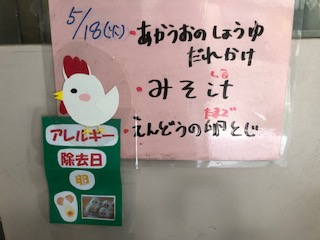 5/18(水)・あかうおのしょうゆ
だれかけ
・みそ汁
しる
・えんどうの卵とじ
たまご
アレルギー
除去日
卵